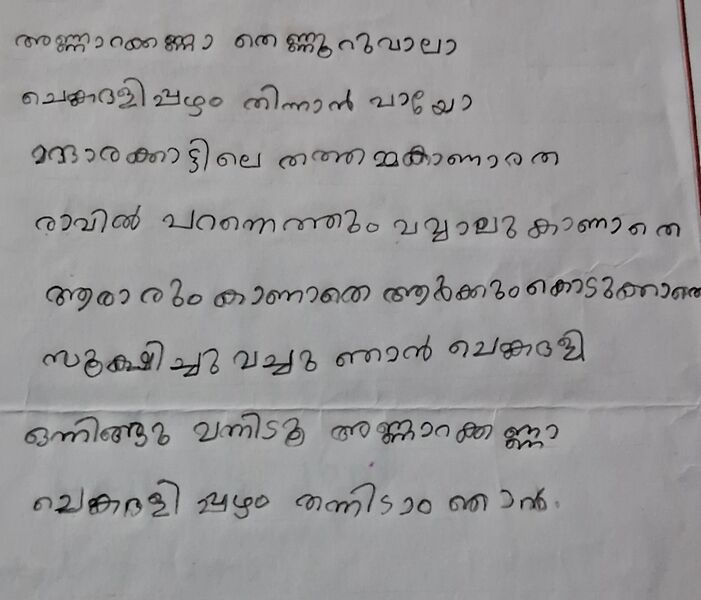 അണ്ണാറക്കണ്ണാ തെണ്ണൂറുവാലാ
ചെങ്കദളിപ്പഴം തിന്നാൻ വായോ
മന്ദാരക്കാട്ടിലെ തത്തമ്മകാണാതെ
രാവിൽ പറന്നെത്തും വവ്വാലു കാണാതെ
ആരാരും കാണാതെ ആർക്കും കൊടുക്കാതെ
സൂക്ഷിച്ചു വച്ചു ഞാൻ ചെങ്കദളി
ഒന്നിങ്ങു വന്നിടൂ അണ്ണാറക്കണ്ണാ
ചെങ്കദളി പ്പഴം തന്നിടാം ഞാൻ.